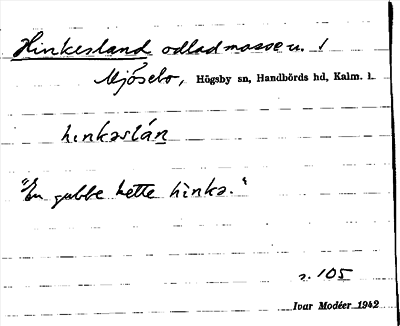 Hinkesland odlad mosse u. /
Mjösebo, Högsby sn, Handbörds hd, Kalm. l.
hinkəslán
"En gubbe hette hinkə."
s. 105
Ivar Modéer 1942